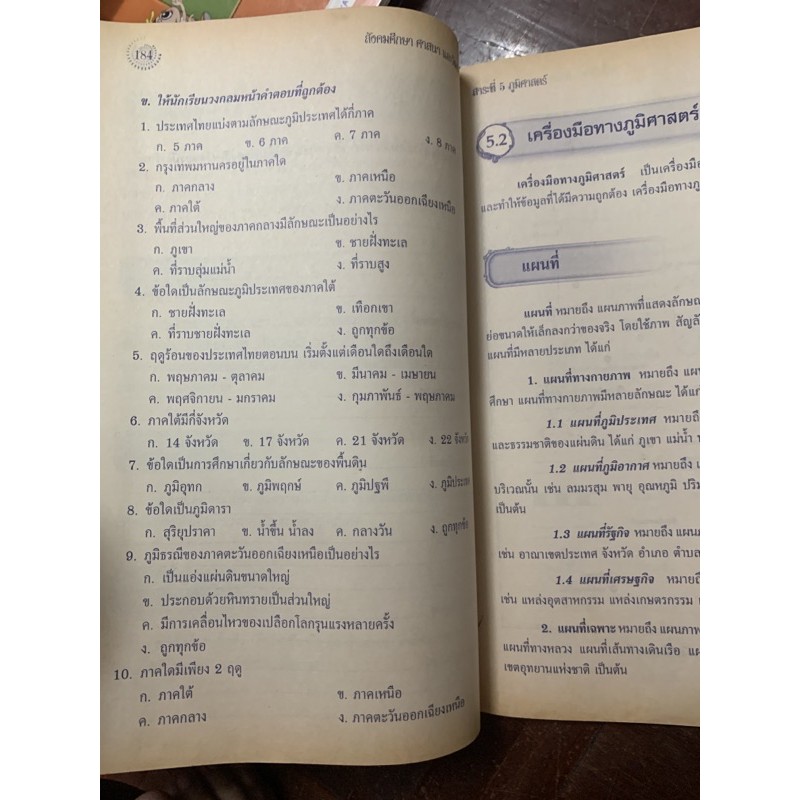 184
สังคมศึกษา ศาสนา และ
ข. ให้นักเรียนวงกลมหน้าคำตอบที่ถูกต้อง
1. ประเทศไทยแบ่งตามลักษณะภูมิประเทศได้กี่ภาค
ก. 5 ภาค ข. 6 ภาค ค. 7 ภาค ง. 8 ภาค
2. กรุงเทพมหานครอยู่ในภาคใด
ก. ภาคกลาง ข. ภาคเหนือ
ค. ภาคใต้ ง. ภาคตะวันออกเฉียงเหนือ
3. พื้นที่ส่วนใหญ่ของภาคกลางมีลักษณะเป็นอย่างไร
ก. ภูเขา ข. ชายฝั่งทะเล
ค. ที่ราบลุ่มแม่น้ำ ง. ที่ราบสูง
4. ข้อใดเป็นลักษณะภูมิประเทศของภาคใต้
ก. ชายฝั่งทะเล ข. เทือกเขา
ค. ที่ราบชายฝั่งทะเล ง. ถูกทุกข้อ
5. ฤดูร้อนของประเทศไทยตอนบน เริ่มตั้งแต่เดือนใดถึงเดือนใด
ก. พฤษภาคม - ตุลาคม ข. มีนาคม - เมษายน
ค. พฤศจิกายน - มกราคม ง. กุมภาพันธ์ - พฤษภาคม
6. ภาคใต้มีกี่จังหวัด
ก. 14 จังหวัด ข. 17 จังหวัด ค. 21 จังหวัด ง. 22 จังหวัด
7. ข้อใดเป็นการศึกษาเกี่ยวกับลักษณะของพื้นดิน
ก. ภูมิอุทก ข. ภูมิพฤกษ์ ค. ภูมิปฐพี ง. ภูมิประเทศ
8. ข้อใดเป็นภูมิดารา
ก. สุริยุปราคา ข. น้ำขึ้น น้ำลง ค. กลางวัน ง. ถูกทุกข้อ
9. ภูมิธรณีของภาคตะวันออกเฉียงเหนือเป็นอย่างไร
ก. เป็นแอ่งแผ่นดินขนาดใหญ่
ข. ประกอบด้วยหินทรายเป็นส่วนใหญ่
ค. มีการเคลื่อนไหวของเปลือกโลกรุนแรงหลายครั้ง
ง. ถูกทุกข้อ
10. ภาคใดมีเพียง 2 ฤดู
ก. ภาคใต้ ข. ภาคเหนือ
ค. ภาคกลาง ง. ภาคตะวันออกเฉียงเหนือ
สาระที่ 5 ภูมิศาสตร์
5.2 เครื่องมือทางภูมิศาสตร์
เครื่องมือทางภูมิศาสตร์ เป็นเครื่องมือ
และทำให้ข้อมูลที่ได้มีความถูกต้อง เครื่องมือทางภู
แผนที่
แผนที่ หมายถึง แผนภาพที่แสดงลักษณ
ย่อขนาดให้เล็กลงกว่าของจริง โดยใช้ภาพ สัญลั
แผนที่มีหลายประเภท ได้แก่
1. แผนที่ทางกายภาพ หมายถึง แผน
ศึกษา แผนที่ทางกายภาพมีหลายลักษณะ ได้แก่
1.1 แผนที่ภูมิประเทศ หมายถึ
และธรรมชาติของแผ่นดิน ได้แก่ ภูเขา แม่น้ำ
1.2 แผนที่ภูมิอากาศ หมายถึง
บริเวณนั้น เช่น ลมมรสุม พายุ อุณหภูมิ ปริม
เป็นต้น
1.3 แผนที่รัฐกิจ หมายถึง แผน
เช่น อาณาเขตประเทศ จังหวัด อำเภอ ตำบล
1.4 แผนที่เศรษฐกิจ หมายถึ
เช่น แหล่งอุตสาหกรรม แหล่งเกษตรกรรม
2. แผนที่เฉพาะ หมายถึง แผนภาพ
แผนที่ทางหลวง แผนที่เส้นทางเดินเรือ แผ
เขตอุทยานแห่งชาติ เป็นต้น